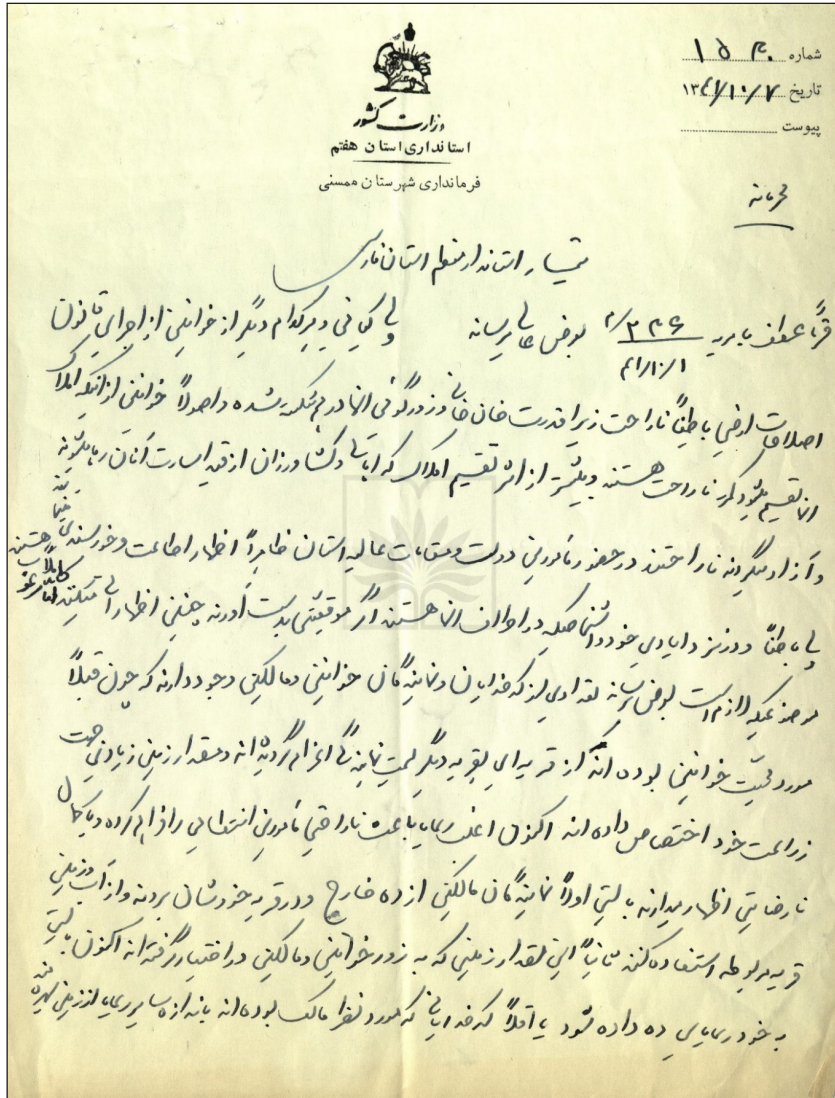 شماره ۱۵۲۰
تاریخ ۱۳۴۱/۱۰/۷
پیوست
وزارت کشور
استانداری استان هفتم
فرمانداری شهرستان ممسنی
محرمانه
تیمسار استاندار معظم استان فارس
عطف بامریه ۳۴۶/م بعرض عالی میرساند ولی کیانی و هرکدام دیگر از خوانین از اجرای قانون
۴۱/۱۰/۱
اصلاحات ارضی باطناً ناراحت زیرا قدرت خان خانی و زورگوئی آنها در هم شکسته شده و اصولاً خوانین از اینکه املاک
آنها تقسیم میشود کمتر ناراحت هستند و بیشتر از اثر تقسیم املاک که اهالی و کشاورزان از قید اسارت آنان رها میشوند
و آزاد میگردند ناراحتند در حضور مامورین دولت و مقامات عالیه استان ظاهراً اظهار اطاعت و خورسندی مینمایند
ولی باطناً و در نزد ایادی خود و اشخاصیکه در اطراف آنها هستند اگر موقعیتی بدست آورند چنین اظهاراتی میکنند
موضوعیکه لازم است بعرض برساند تعدادی از کدخدایان و نمایندگان خوانین و مالکین وجود دارند که چون قبلاً
مورد محبت خوانین بوده اند از قریه ای بقریه دیگر بسمت نمایندگی اعزام گردیده اند و مقدار زمین زیادی جهت
زراعت خود اختصاص داده اند اکنون اغلب رعایا باعث ناراحتی مامورین انتظامی را فراهم کرده و با کمال
نارضایتی اظهار میدارند بایستی اولاً نمایندگان مالکین از ده خارج و در قریه خودشان بروند و از آب و زمین
قریه مربوطه استفاده کنند ثانیاً این مقدار زمینی که به زور خوانین و مالکین در اختیار گرفته اند اکنون بایستی
به خود رعایای ده داده شود یا اقلاً کدخدایانی که مورد نظر مالک بوده اند باندازه سایر رعایا از زمین بهره مند